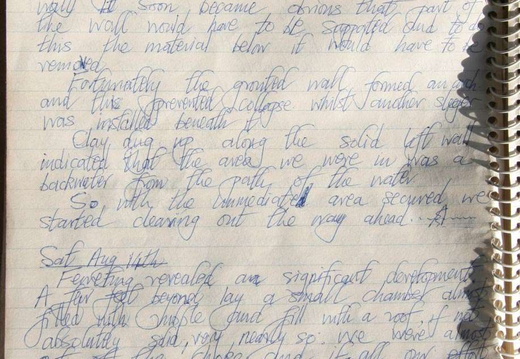 wall. It soon became obvious that part of
the wall would have to be supported and to do
this the material below it would have to be
removed.
Fortunately the grouted wall formed an arch
and this prevented collapse whilst another
was installed beneath it.
Clay dug up along the solid left wall
indicated that the area we were in was a
backwater from the path of the water.
So, with the immediate area secured, we
started clearing out the way ahead....
Sat Aug 14th
revealed a significant development.
A few feet beyond lay a small chamber almost
filled with and fill with a roof, if not
absolutely solid, very nearly so. We were almost
out of the and it all